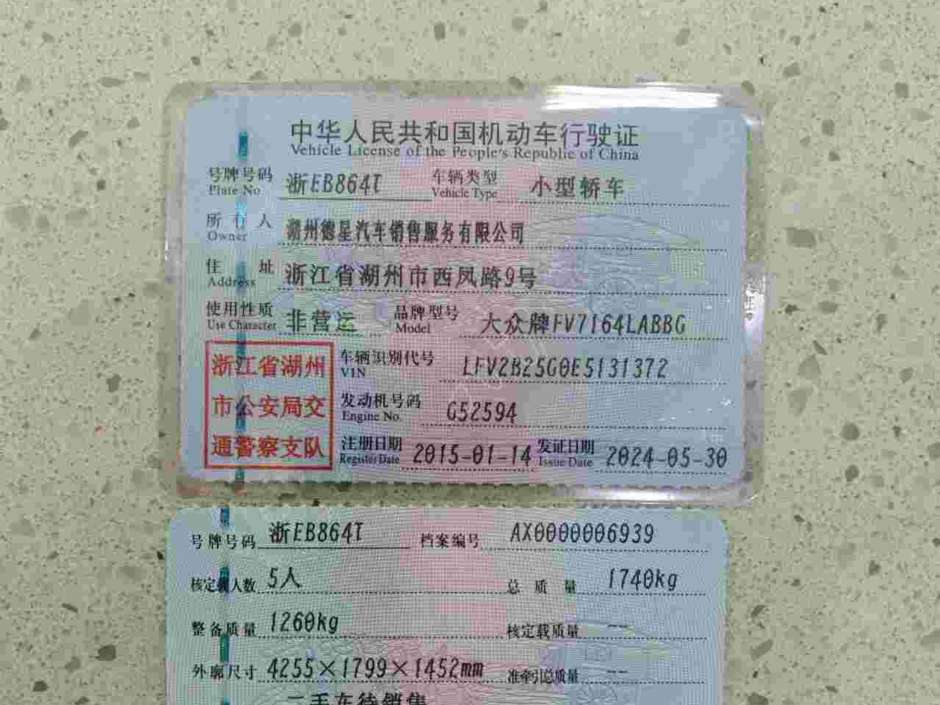 中华人民共和国机动车行驶证
Vehicle License of the People's Republic of China
号牌号码 浙EB864T 车辆类型 小型轿车
Plate No. Vehicle Type
所有人 湖州德星汽车销售服务有限公司
Owner
住址 浙江省湖州市西凤路9号
Address
使用性质 非营运 品牌型号 大众牌FV7164LABBG
Use Character Model
浙江省湖州
市公安局交
通警察支队
车辆识别代号 LFV2B25G0E5131372
VIN
发动机号码 G52594
Engine No.
注册日期 2015-01-14 发证日期 2024-05-30
Register Date Issue Date
号牌号码 浙EB864T 档案编号 AX0000006939
核定载人数 5人 总质量 1740kg
整备质量 1260kg 核定载质量 --
外廓尺寸 4255×1799×1452mm 准牵引总质量 --
二手车待销售